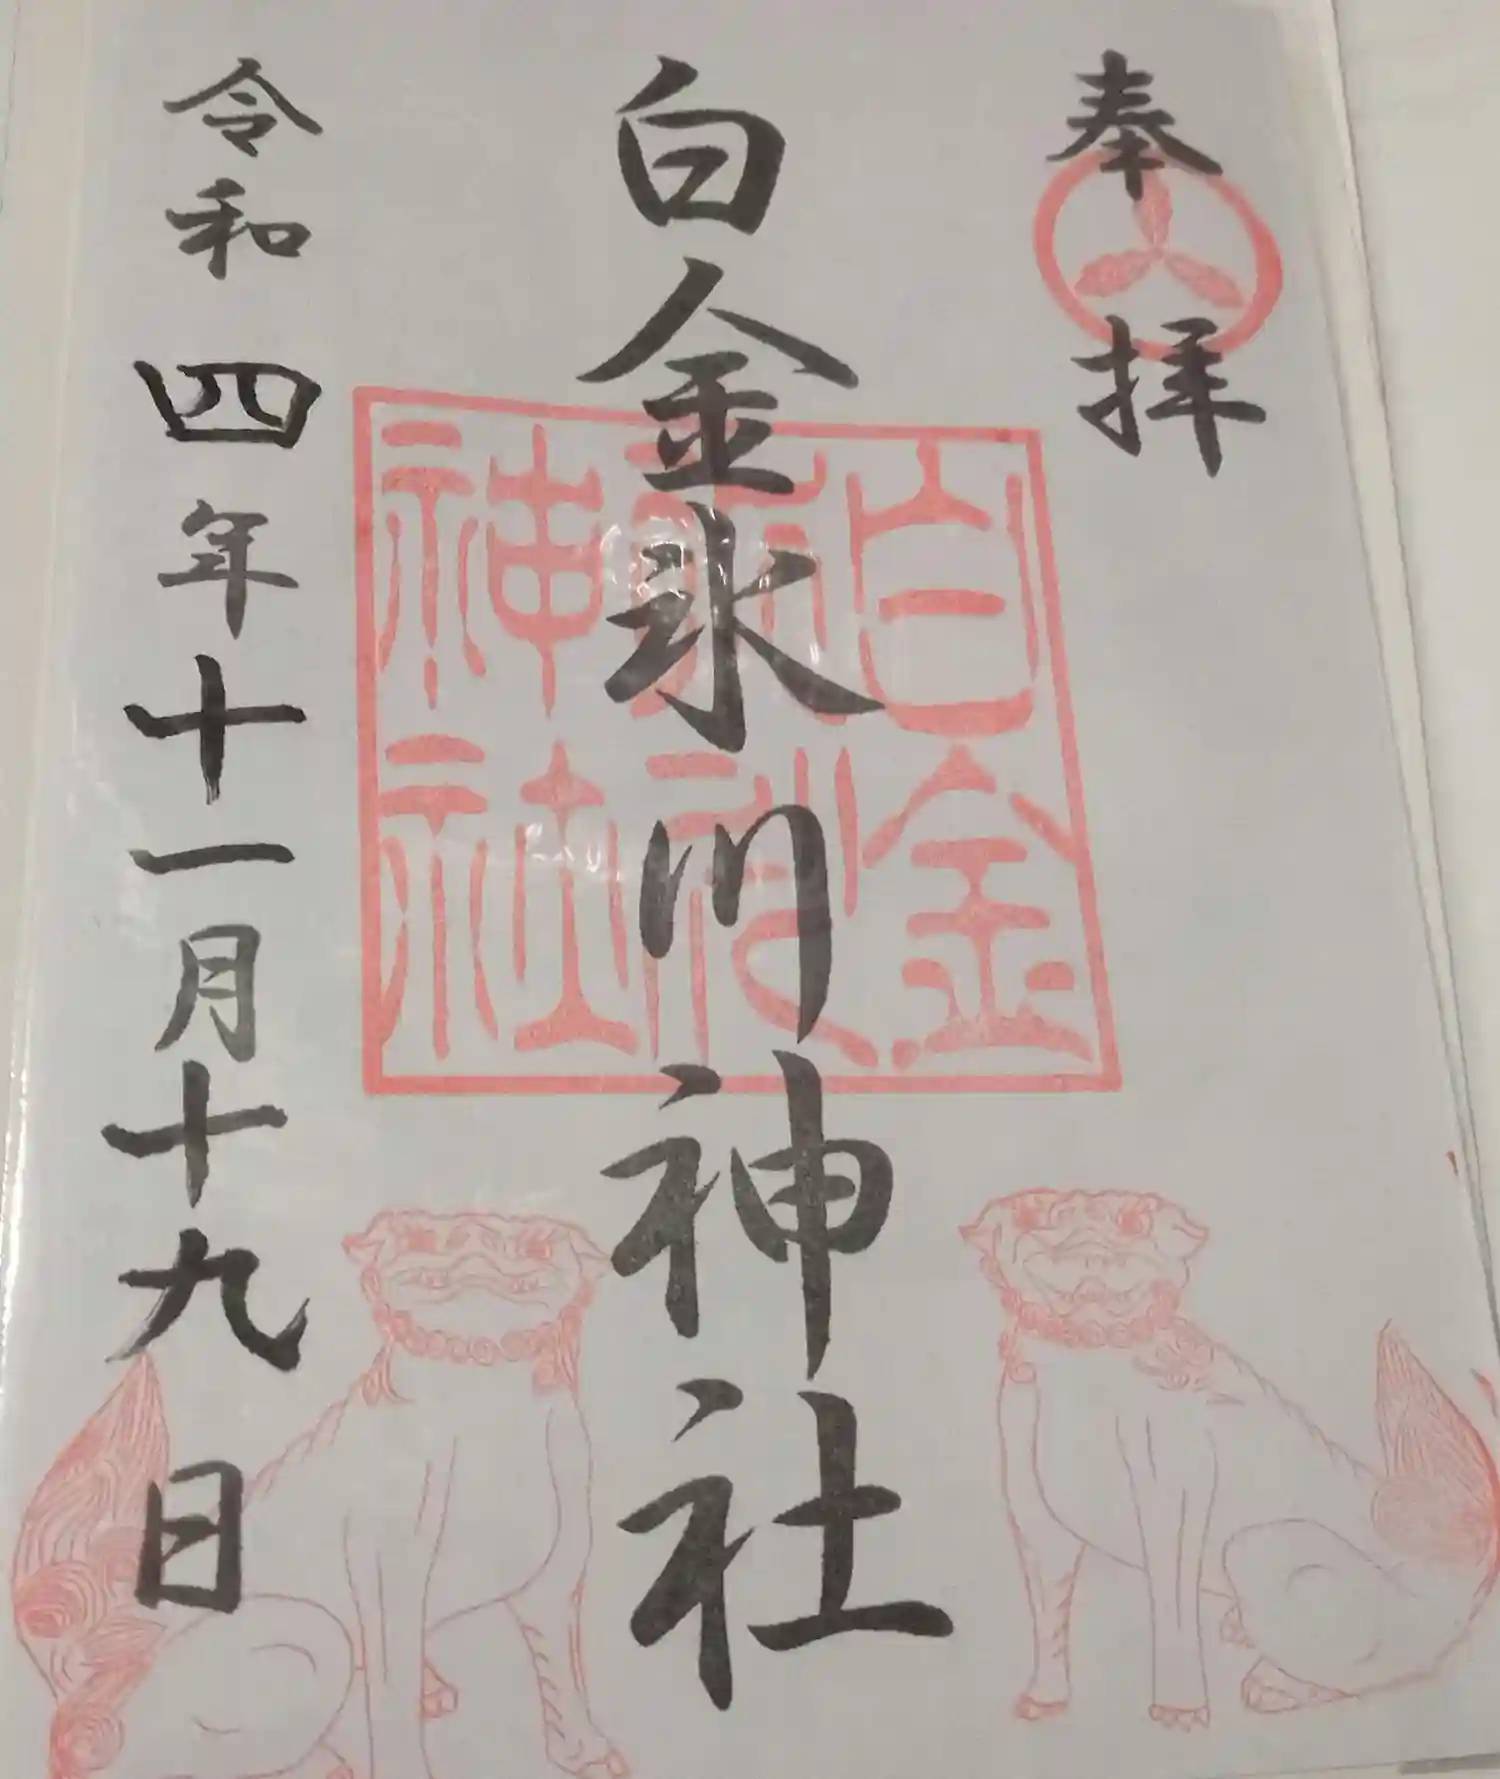 奉拝
白金氷川神社
令和四年十一月十九日
白金
神社